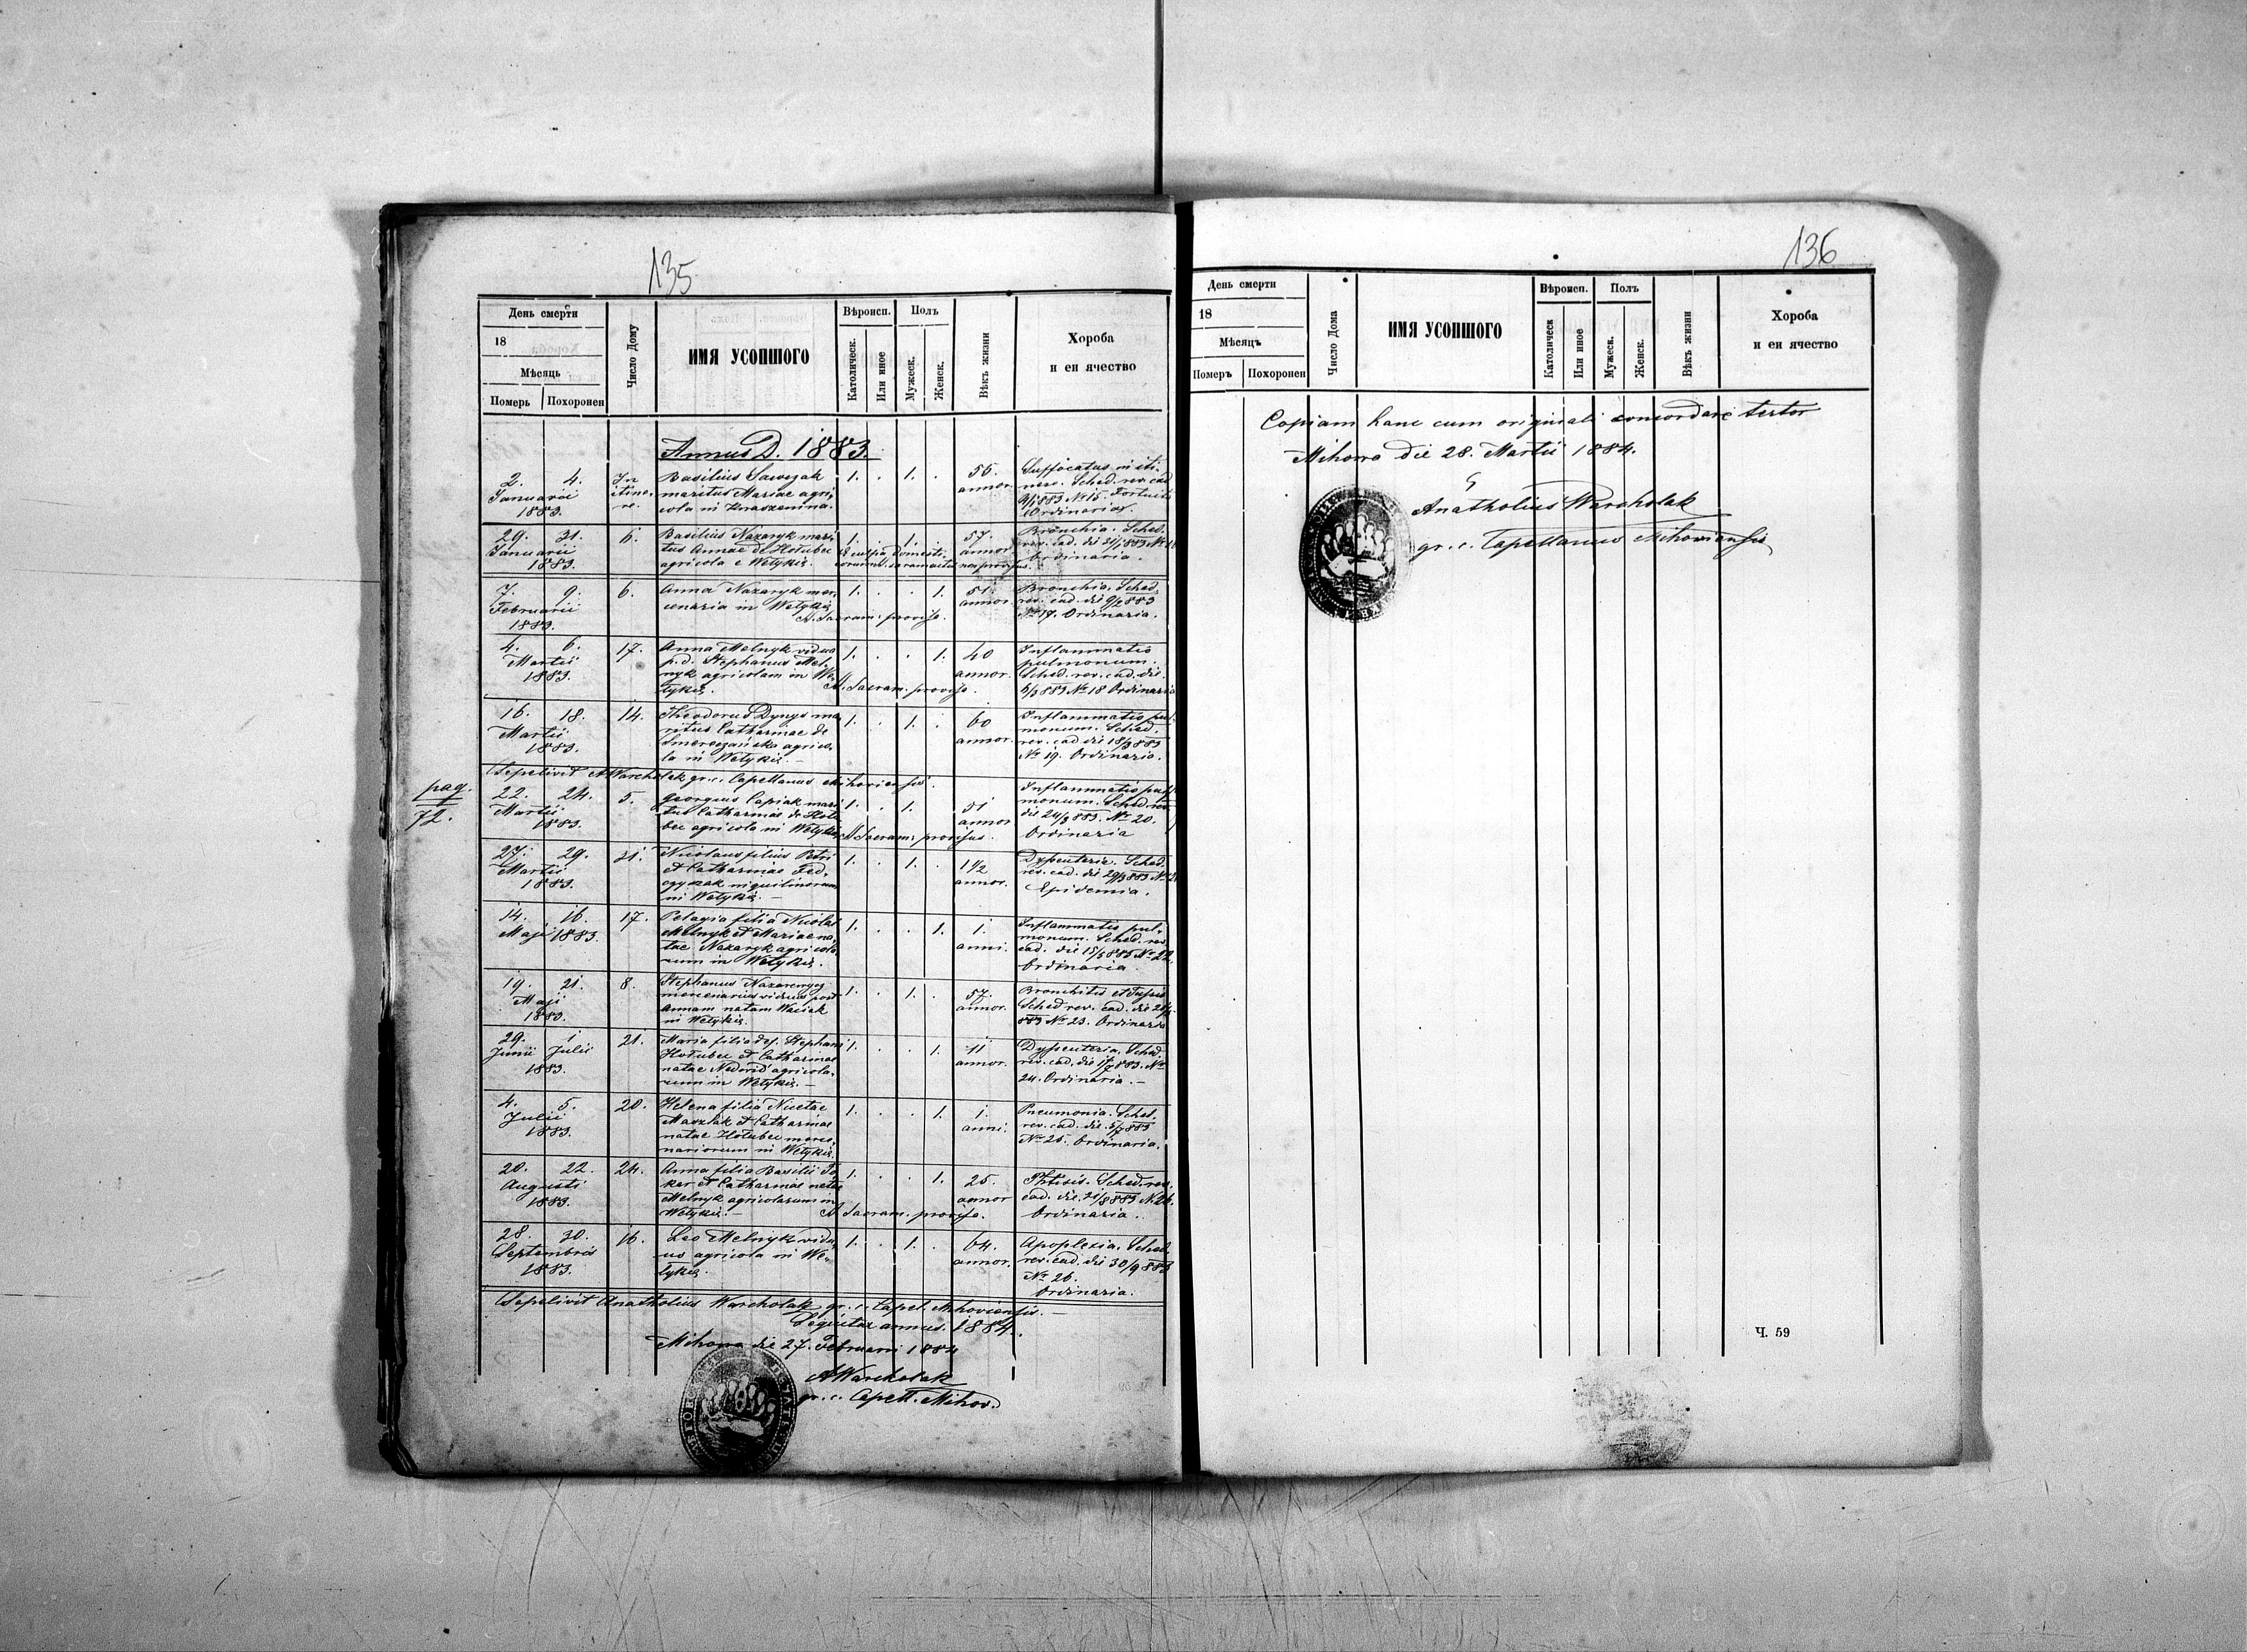 135
День смерти
18
Мѣсяць
Померь Похоронен
Число Дому
ИМЯ УСОПШОГО
Вѣроисп.
Католическ.
Или иное
Полъ
Мужеск.
Женск.
Вѣкъ жизни
Хороба
и еи ячество
Annus D. 1883.
2. 4.
Januarii
1883.
In
itine-
re.
Basilius
maritus Mariae agri-
cola in
1. . 1. .
annor.
Suffocatus in iti-
nere. Sched. rev. cad.
№ 15.
Ordinaria.
29. 31.
Januarii
1883.
6.
Basilius Nazaryk mari-
tus Annae de Hołubec
agricola e Wetyki.
1. . 1. .
57.
annor.
Bronchia. Sched.
rev. cad. die
Ordinaria.
7. 9.
Februarii
1883.
6.
Anna Nazaryk mer-
cenaria in Wetyki
1. . . 1.
51.
annor.
Bronchia. Sched.
rev. cad. die 9/2 883
№ 17. Ordinaria.
Sacram: provisa.
4. 6.
Martii
1883.
17.
Anna Melnyk vidua
p. d. Stephanus Mel-
nyk agricolam in We-
tyki.
1. . . 1.
40
annor.
Inflammatio
pulmonum.
Sched. rev. cad. die
6/3 883 № 18 Ordinaria
Sacram. provisa.
16. 18.
Martii
1883.
14.
Theodorus Dynys ma-
ritus Catharinae de
agrico-
la in Wetyki. —
1. . 1. .
60
annor.
Inflammatio pul-
monum. Sched.
rev. cad die 18/3 883
№ 19. Ordinaria.
Sepelivit AWarcholak gr. c. Capellanus Mihoviensis.
pag.
72.
22. 24.
Martii
1883.
5.
Georgius Capiak mari-
tus Catharinae de Hołu-
bec agricola in Wetyki
1. . 1. .
51
annor
Inflammatio pul-
monum. Sched. rev.
die 24/3 883. № 20.
Ordinaria
Sacram: provisus.
27. 29.
Martii
1883.
31.
Nicolaus filius Petri
et Catharinae Fed-
inquilinorum
in Wetyki. —
1. . 1. .
1 1/2
annor.
Dysenteria. Sched.
rev. cad. die 29/3 883 №
Epidemia.
14. 16.
Maji 1883.
17.
Pelagia filia Nicolai
Melnyk et Mariae na-
tae Nazaryk agricola-
rum in Wetyki.
1. . . 1.
1.
anni.
Inflammatio pul-
monum. Sched. rev.
cad. die 15/5 883 № 22.
Ordinaria.
19. 21.
Maji
1883.
8.
Stephanus
mercenarius viduus post
Annam natam
in Wetyki.
1. . 1. .
57.
annor.
Bronchitis et
Sched rev. cad. die
883 № 23. Ordinaria
29. 1
Junii Julii
1883.
21.
Maria filia def. Stephani
Hołubec et Catharinae
natae agricola-
rum in Wetyki. —
1. . . 1.
11
annor.
Dysenteria. Sched.
rev. cad. die 1/7 883. №
24. Ordinaria. —
4. 5.
Julii
1883.
20.
Helena filia Nicetae
et Catharinae
natae Hołubec merce-
nariorum in Wetyki.
1. . . 1.
1.
anni.
Pneumonia. Sched.
rev. cad. die. 5/7 883
№ 25. Ordinaria.
20. 22.
Augusti
1883.
24.
Anna filia Basilii
et Catharinae natae
Melnyk agricolarum in
Wetyki. —
1. . . 1.
25.
annor
Phtisis. Sched. rev.
cad. die
Ordinaria.
Sacram. provisa.
28. 30.
Septembris
1883.
16.
Leo Melnyk vidu-
us agricola in We-
tyki.
1. . 1. .
64.
annor.
Apoplexia. Sched.
rev. cad. die 30/9 883
№ 26.
Ordinaria.
Sepelivit Anatholius Warcholak gr. c. Capel. Mihoviensis. —
Sequitur annus. 1884.
Mihowa die 27. Februarii 1884
AWarcholak
gr. c. Capell. Mihov.
136
День смерти
18
Мѣсяцъ
Померъ Похоронен
Число Дома
ИМЯ УСОПШОГО
Вѣроисп.
Католическ
Или иное
Полъ
Мужеск.
Женск.
Вѣкъ жизни
Хороба
и еи ячество
Copiam hanc cum originali concordare testor
Mihowa die 28. Martii 1884.
Anatholius Warcholak
gr. c. Capellanus Mihoviensis
Ч. 59